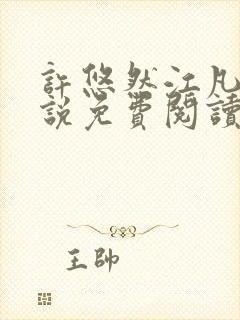 許悠然江凡
說免費閱讀
王帥